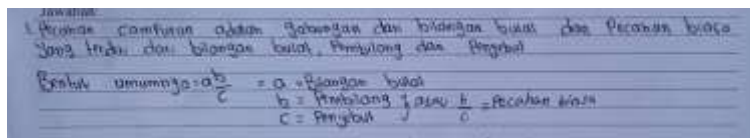 Jawaban
1. Pecahan campuran adalah gabungan dari bilangan bulat dan Pecahan biasa
yang terdiri dari bilangan bulat, Pembilang dan Penyebut
Bentuk umumnya = a b/c = a = Bilangan bulat
b = Pembilang } atau b/c = Pecahan biasa
c = Penyebut